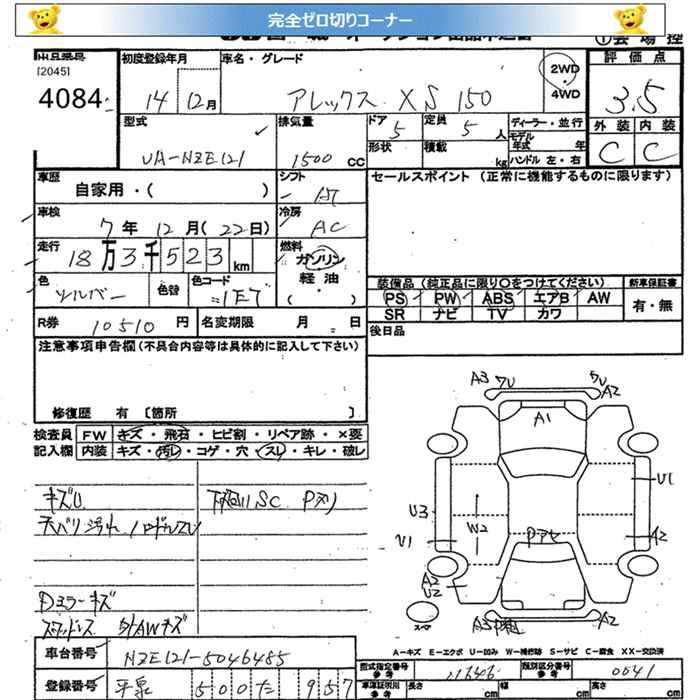 完全ゼロ切りコーナー
[2045]
4084
初度登録年月
14 12月
車名・グレード
アレックス XS 150
2WD
4WD
評価点
3.5
外装 内装
C C
型式
UA-NZE121
排気量
1500 cc
ドア 5
形状
定員 5 人
積載 kg
ディーラー・並行
モデル年式 年
ハンドル 左・右
車歴
自家用・( )
シフト
AT
セールスポイント (正常に機能するものに限ります)
車検
7年 12月(22日)
冷房
AC
走行
18万3千523km
燃料
ガソリン
軽油
( )
色
シルバー
色替
色コード
1E7
装備品 (純正品に限り○をつけてください)
新車保証書
PS PW ABS エアB AW
有・無
SR ナビ TV カワ
R券
10510 円
名変期限 月 日
後日品
注意事項申告欄 (不具合内容等は具体的に記入して下さい)
修復歴 有 〔箇所 〕
検査員
記入欄
FW キズ・飛石・ヒビ割・リペア跡・×要
内装 キズ・汚レ・コゲ・穴・スレ・キレ・破レ
キズU
天バリ汚れ ハンドルスレ
Dミラーキズ
スタッドレス 外AWキズ
A3 A2
A1
U1
U3
W2
U1
A2
Pアセ
A2
U2
A3
スペア
A-キズ E-エクボ U-凹み W-補修跡 S-サビ C-腐食 XX-交換済
車台番号
NZE121-5046485
登録番号
平泉 500 た 957
型式指定番号
参考
類別区分番号
参考
0041
車庫証明用
参考
長さ cm 幅 cm 高さ cm